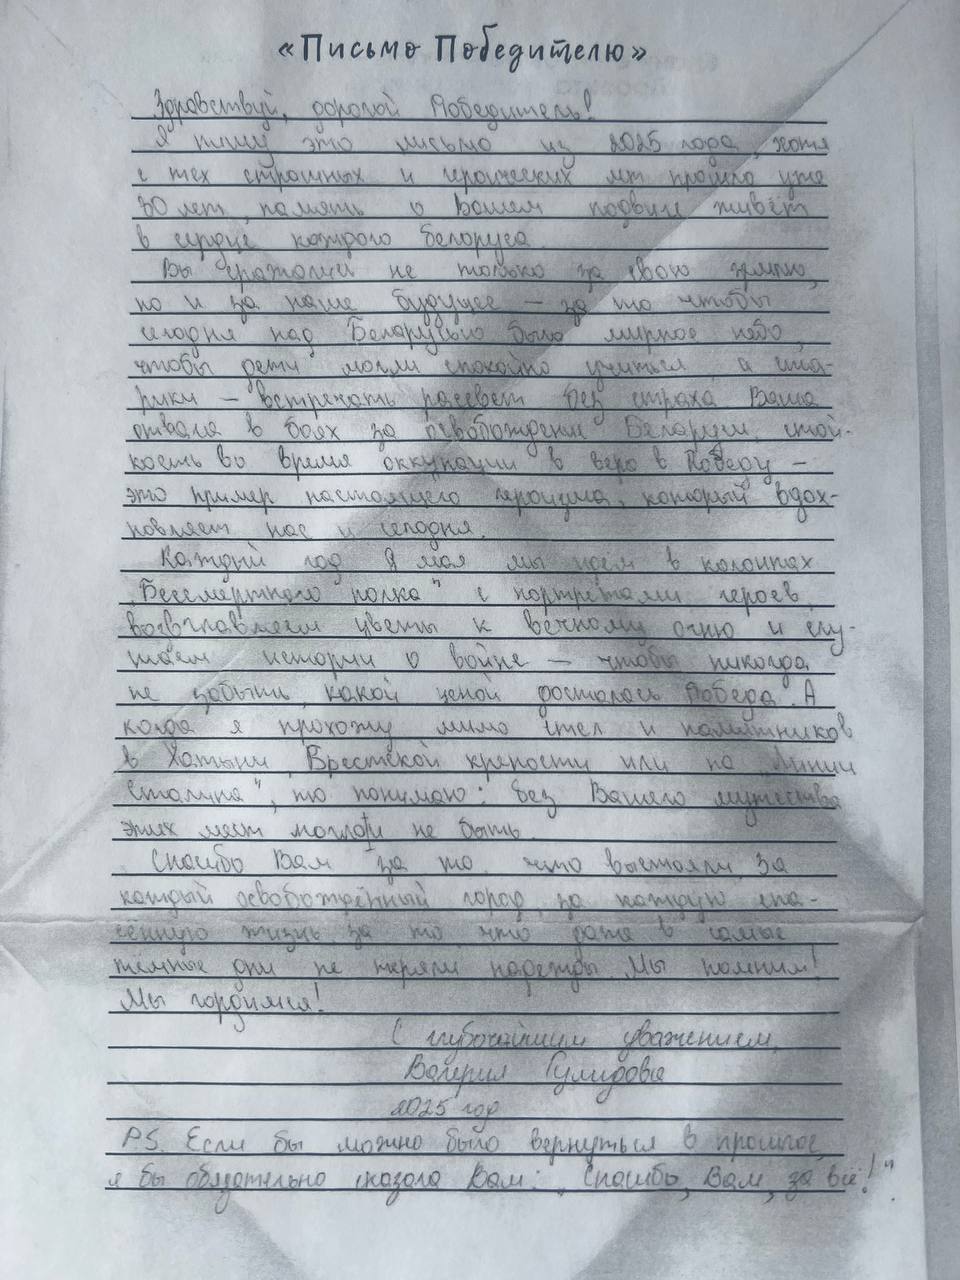 «Письмо Победителю»
Здравствуй, дорогой Победитель!
Я пишу это письмо из 2025 года, хотя
с тех страшных и героических лет прошло уже
80 лет, память о Вашем подвиге живёт
в сердце каждого белоруса.
Вы сражались не только за свою землю,
но и за наше будущее – за то чтобы
сегодня над Беларусью было мирное небо,
чтобы дети могли спокойно учиться, а ста-
рики – встречать рассвет без страха. Ваша
отвага в боях за освобождение Беларуси, стой-
кость во время оккупации в вера в Победу –
это пример настоящего героизма, который вдох-
новляет нас и сегодня.
Каждый год 9 мая мы идём в колоннах
"Бессмертного полка" с портретами героев,
цветы к вечному огню и слу-
шаем истории о войне – чтобы никогда
не забыть, какой ценой досталась Победа. А
когда я прохожу мимо стел и памятников
в Хатыни, Брестской крепости или на „Линии
Сталина", то понимаю: без Вашего мужества
этих мест могло и не быть.
Спасибо Вам за то, что выстояли, за
каждый освобождённый город, за каждую спа-
сённую жизнь, за то, что даже в самые
тёмные дни не теряли надежды. Мы помним!
Мы гордимся!
С глубочайшим уважением,
Валерия
2025 год
P.S. Если бы можно было вернуться в прошлое,
я бы обязательно сказала Вам: „Спасибо, Вам, за всё!".